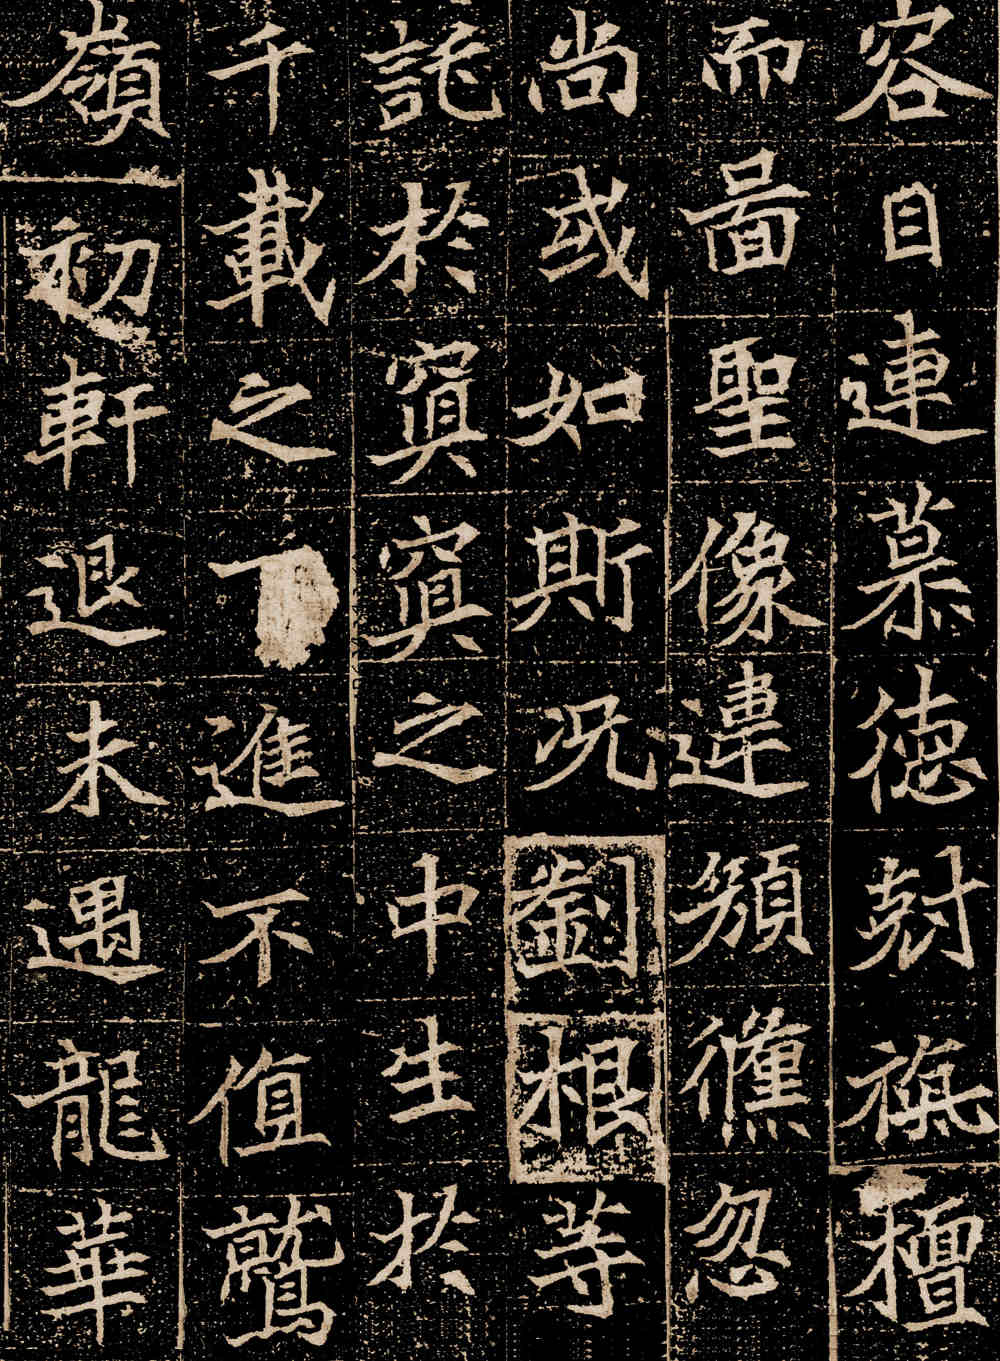 容目連慕德尅旃檀
而啚聖像違顏倏忽
尚或如斯況劉根等
託於冥冥之中生於
千載之下進不值鷲
嶺初軒退未遇龍華